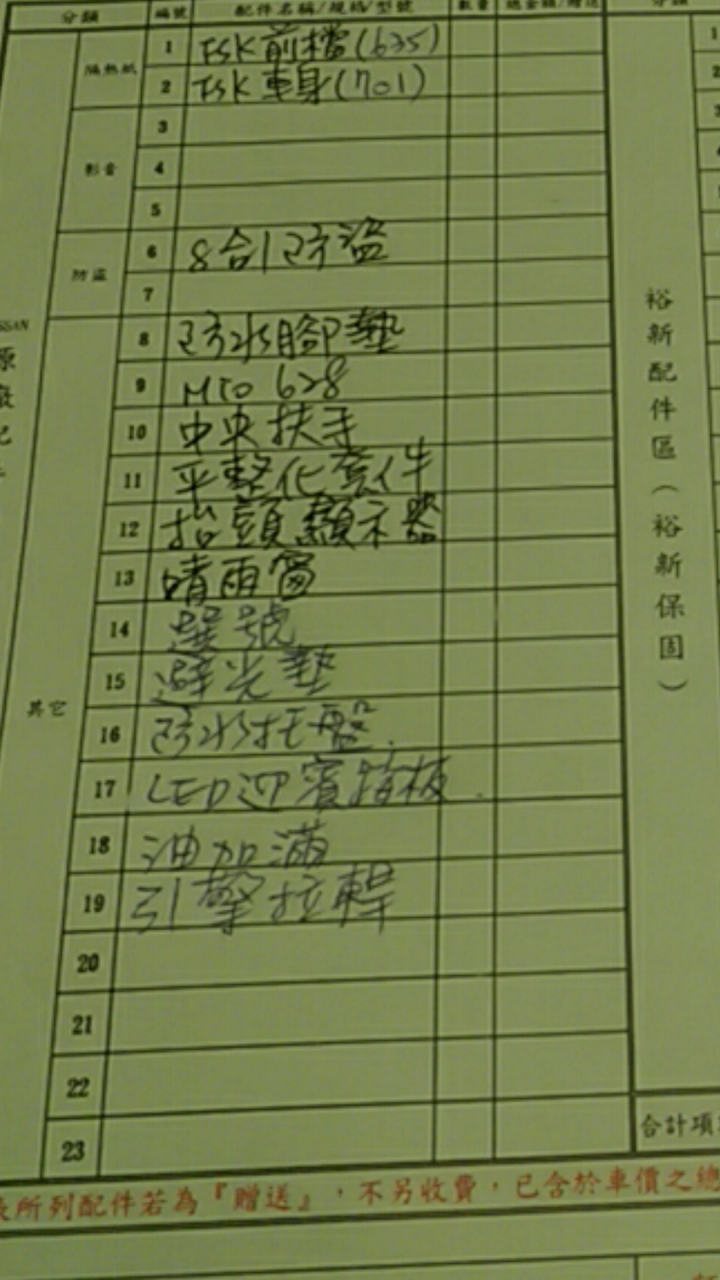 分類 編號 配件名稱/規格/型號 數量 總金額/贈送 分類
隔熱紙
1 FSK前檔(635)
2 FSK車身(701)
影音
3
4
5
防盜
6 8合1防盜
7
其它
8 防水腳墊
9 MIO 628
10 中央扶手
11 平整化套件
12 抬頭顯示器
13 晴雨窗
14 選號
15 避光墊
16 防水托盤
17 LED迎賓踏板
18 油加滿
19 引擎拉桿
20
21
22
23
裕新配件區(裕新保固)
合計項
所列配件若為『贈送』,不另收費,已含於車價之總